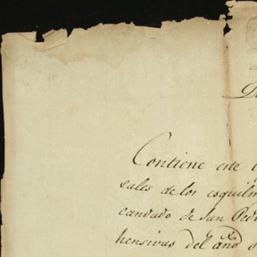 Contiene este
sales de los esquilm
candado de San Ped
hensivas del año